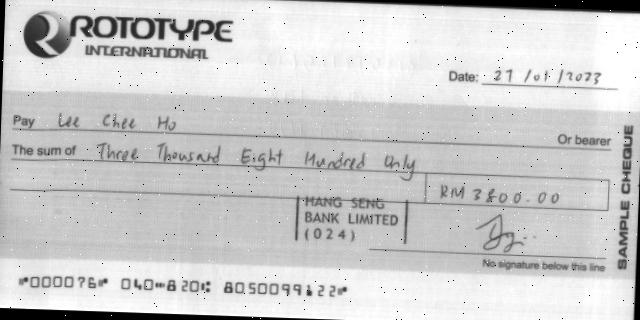 ROTOTYPE
INTERNATIONAL
Date: 27/01/2023
Pay Lee Chee Ho
Or bearer
The sum of Three Thousand Eight Hundred Only
RM 3800.00
HANG SENG
BANK LIMITED
(024)
No signature below this line
SAMPLE CHEQUE
"000076" 040-820: 8050099122"